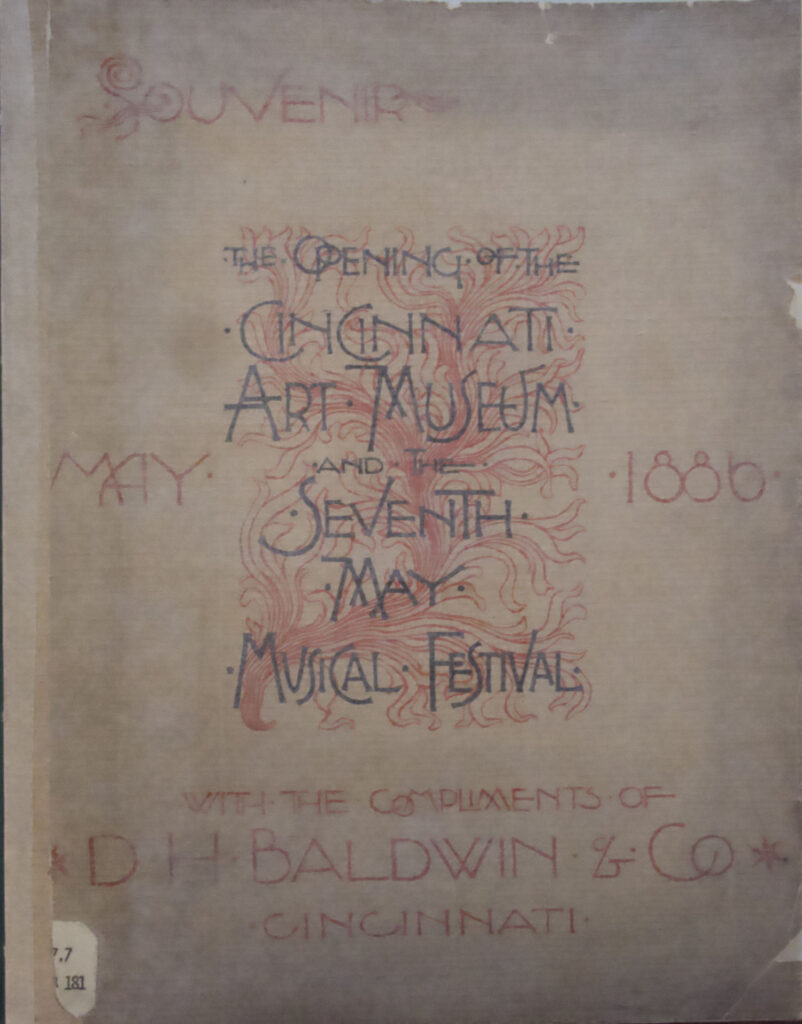 SOUVENIR
·THE·OPENING·OF·THE·
·CINCINNATI·
ART·MUSEUM·
·AND·THE·
MAY· ·1886·
·SEVENTH·
·MAY·
·MUSICAL·FESTIVAL·
WITH·THE COMPLIMENTS·OF
* D·H·BALDWIN·&·CO *
·CINCINNATI·
7.7
181